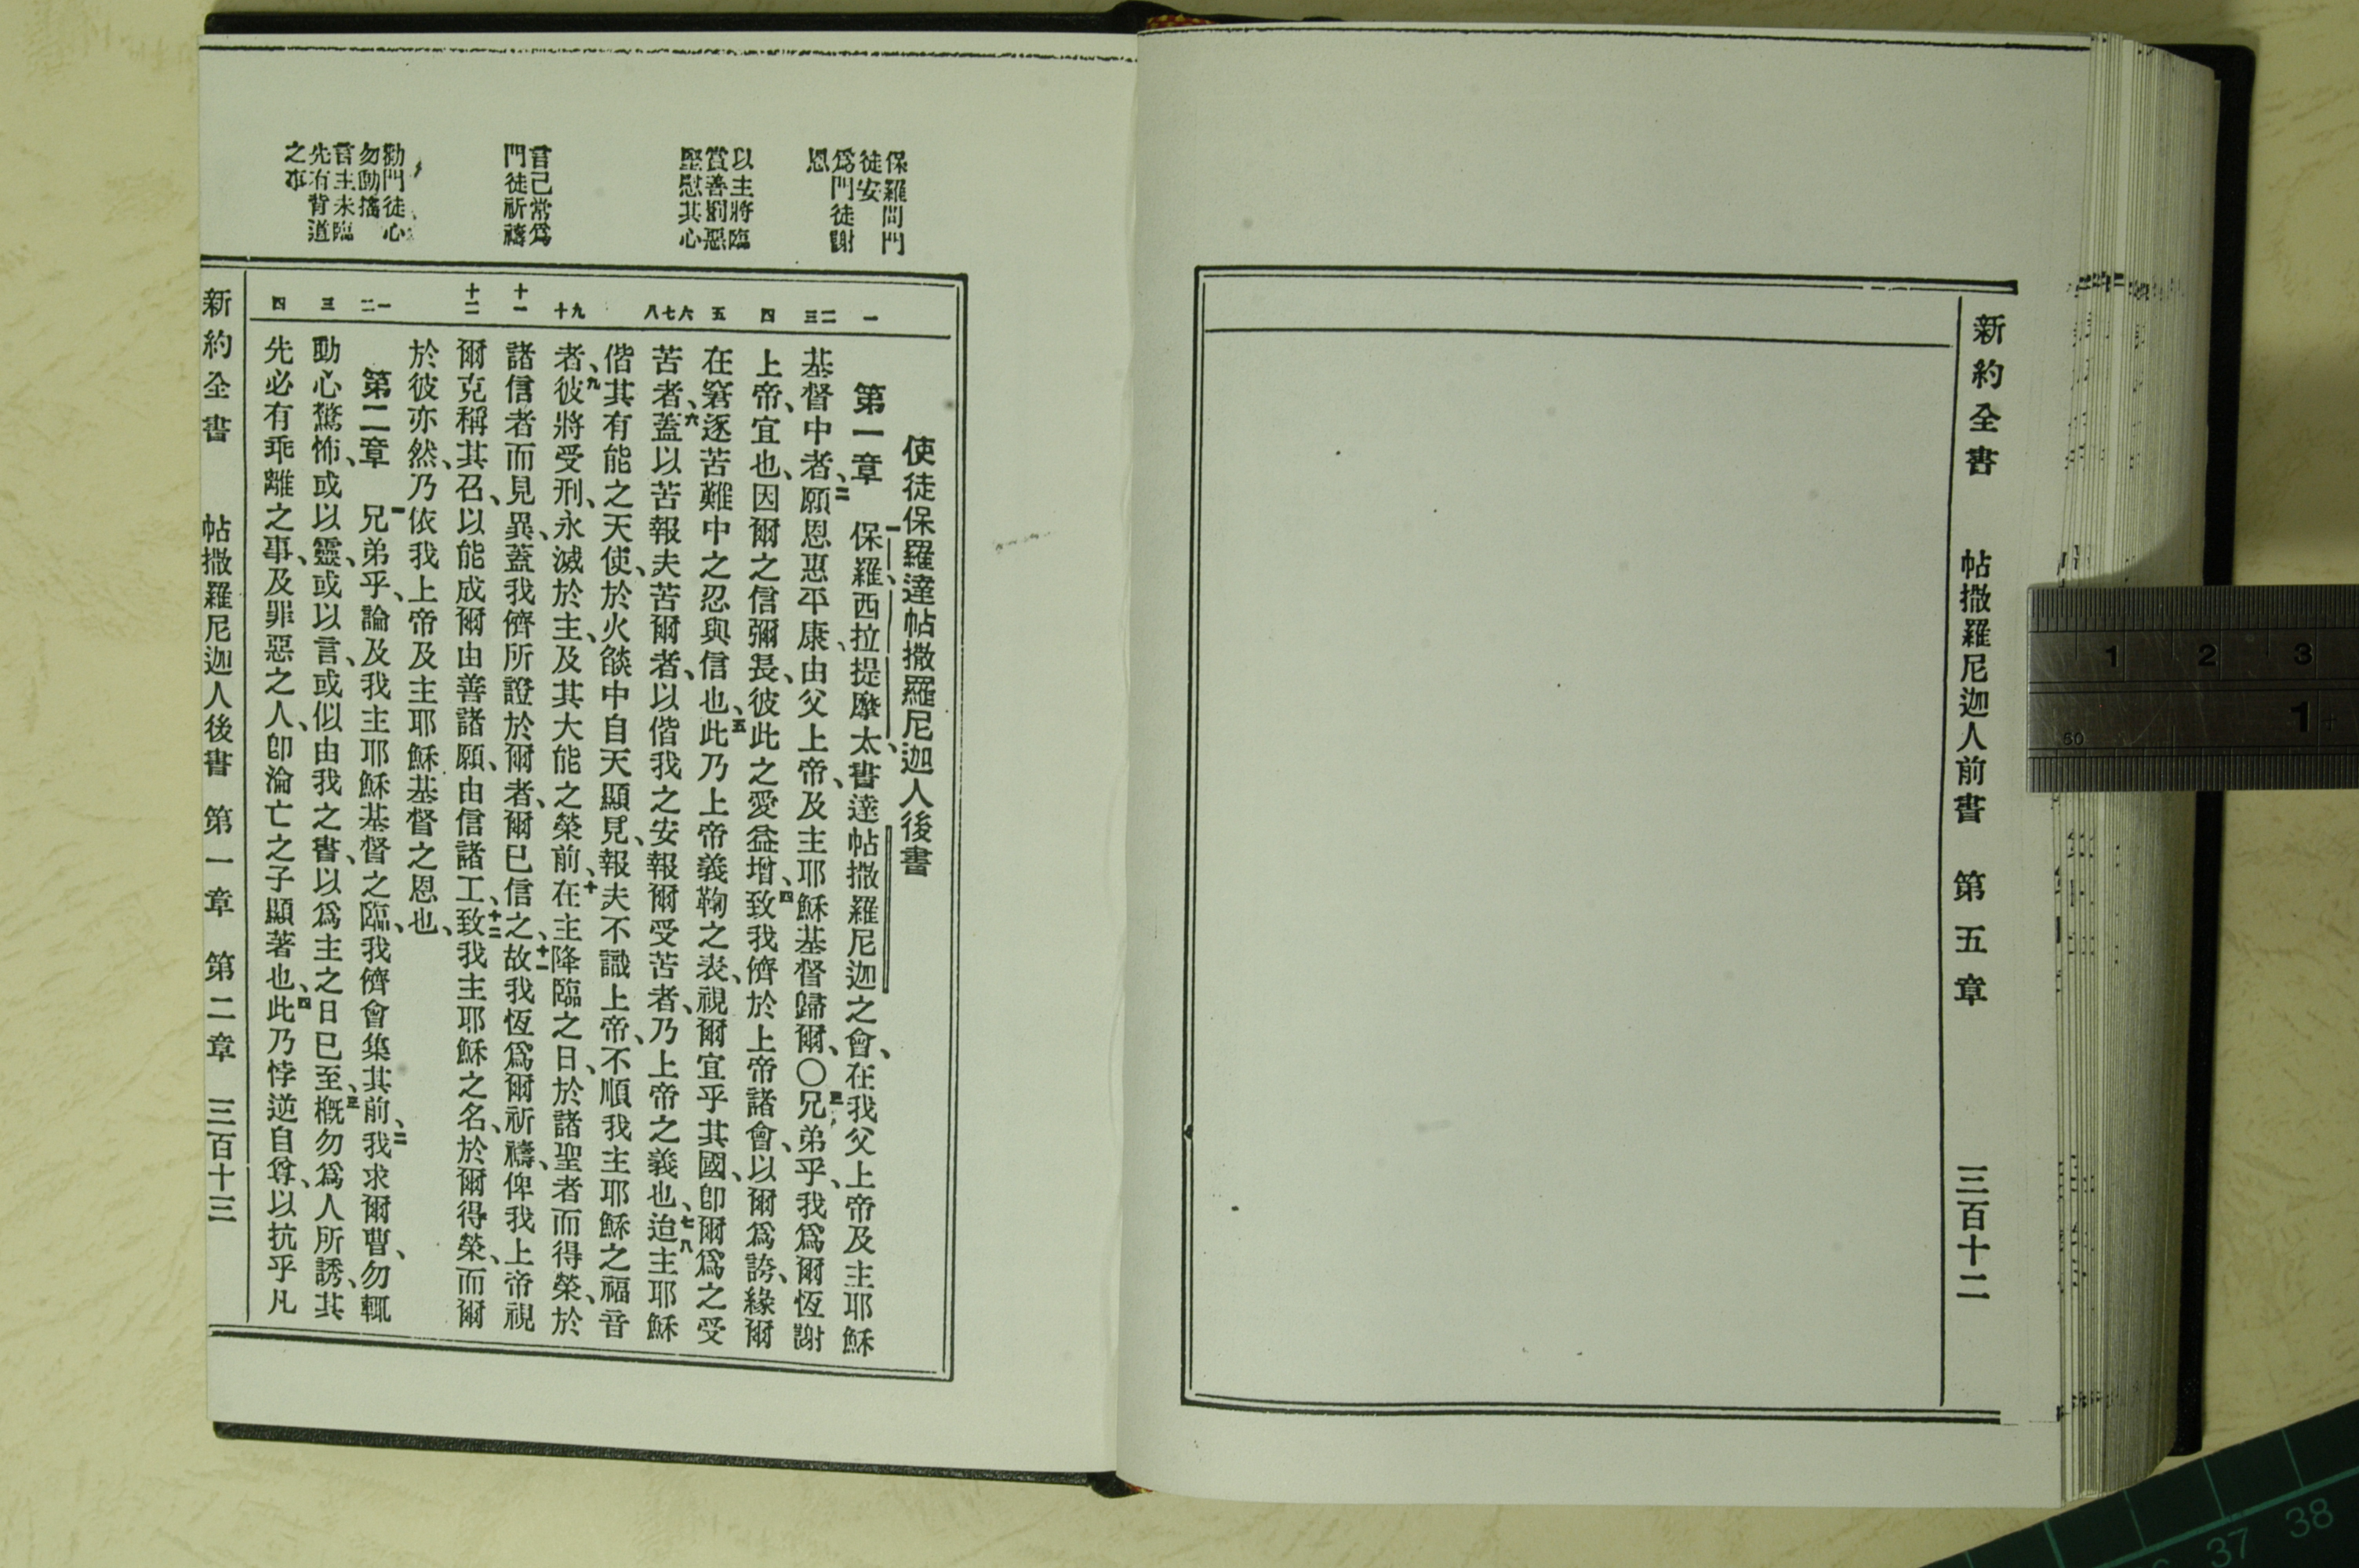 新約全書 帖撒羅尼迦人前書 第五章 三百十二
保羅問門
徒安
爲門徒謝
恩
以主將臨
賞善罰惡
堅慰其心
言己常爲
門徒祈禱
勸門徒心
勿動搖
言主未臨
先有背道
之事
一
二三
四
五
六七八
九十
十一
十二
一二
三
四
使徒保羅達帖撒羅尼迦人後書
第一章 一保羅、西拉、提摩太、書達帖撒羅尼迦之會、在我父上帝及主耶穌
基督中者、二願恩惠平康、由父上帝、及主耶穌基督歸爾、〇三兄弟乎、我爲爾恆謝
上帝、宜也、因爾之信彌長、彼此之愛益增、四致我儕於上帝諸會、以爾爲誇、緣爾
在窘逐苦難中之忍與信也、五此乃上帝義鞫之表、視爾宜乎其國、卽爾爲之受
苦者、六蓋以苦報夫苦爾者、以偕我之安、報爾受苦者、乃上帝之義也、七八迨主耶穌
偕其有能之天使、於火燄中自天顯見、報夫不識上帝、不順我主耶穌之福音
者、九彼將受刑、永滅於主、及其大能之榮前、十在主降臨之日、於諸聖者而得榮、於
諸信者而見異、蓋我儕所證於爾者、爾已信之、十一故我恆爲爾祈禱、俾我上帝視
爾克稱其召、以能成爾由善諸願、由信諸工、十二致我主耶穌之名、於爾得榮、而爾
於彼亦然、乃依我上帝及主耶穌基督之恩也、
第二章 一兄弟乎、論及我主耶穌基督之臨、我儕會集其前、二我求爾曹、勿輒
動心驚怖、或以靈、或以言、或似由我之書、以爲主之日已至、三槪勿爲人所誘、其
先必有乖離之事、及罪惡之人、卽淪亡之子顯著也、四此乃悖逆自尊、以抗乎凡
新約全書 帖撒羅尼迦人後書 第一章 第二章 三百十三
1 2 3
1
60
37 38